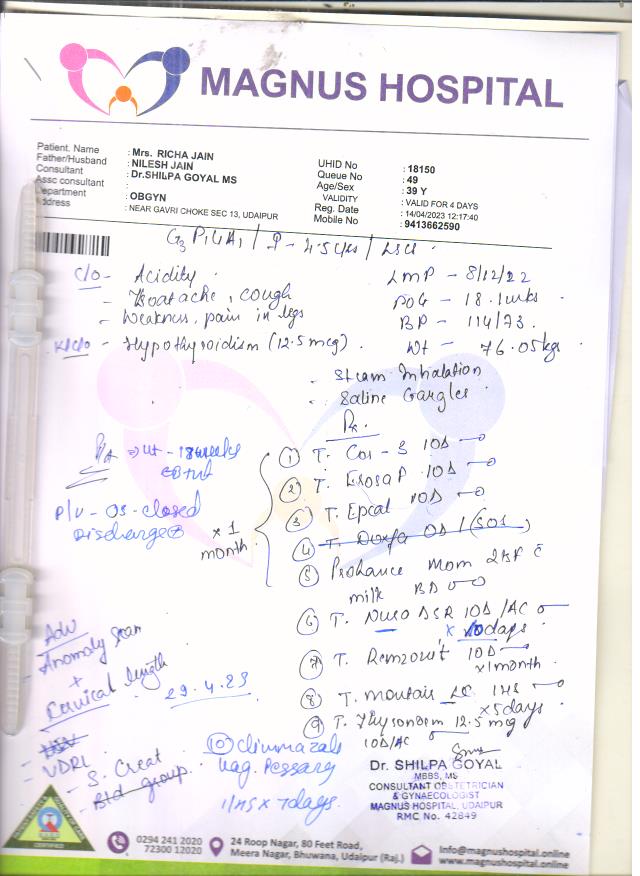 MAGNUS HOSPITAL
Patient. Name : Mrs. RICHA JAIN
Father/Husband : NILESH JAIN
Consultant : Dr.SHILPA GOYAL MS
Assc consultant :
Department : OBGYN
Address : NEAR GAVRI CHOKE SEC 13, UDAIPUR
UHID No : 18150
Queue No : 49
Age/Sex : 39 Y
VALIDITY : VALID FOR 4 DAYS
Reg. Date : 14/04/2023 12:17:40
Mobile No : 9413662590
G3 P1L1A1 / ♀ - 4.5 yrs / LSCS
C/O - Acidity
- cough
- Weakness, pain in legs
K/C/O - Hypothyroidism (12.5 mcg)
LMP - 8/12/22
POG - 18.1 wks
BP - 114/73.
Wt - 76.05 kgs
- Steam Inhalation
- Saline Gargles
Rx.
P/A → Ut - 18 weeks
P/V - OS - closed
Discharge ⊕
x 1 month
① T. Cos - S 1OD
② T. 1OD
③ T. Epcal 1OD
④ T. OD / (SOS)
⑤ Prohance Mom 2tsf c̄
milk BD
⑥ T. Nuso DSR 1OD /AC
x 10 days
⑦ T. 1OD
x 1 month
⑧ T. Montair LC 1HS
x 5 days
⑨ T. Thyronorm 12.5 mcg
1OD/AC
⑩ Clinmazals
Vag. Pessary
1/HS x 7 days.
Adv
- Anomaly Scan
+
Cervical length
29.4.23
- VDRL
- S. Creat
- Bld group.
Dr. SHILPA GOYAL
MBBS, MS
CONSULTANT OBSTETRICIAN
& GYNAECOLOGIST
MAGNUS HOSPITAL, UDAIPUR
RMC No. 42849
CERTIFIED
0294 241 2020
72300 12020
24 Roop Nagar, 80 Feet Road,
Meera Nagar, Bhuwana, Udaipur (Raj.)
Info@magnushospital.online
www.magnushospital.online